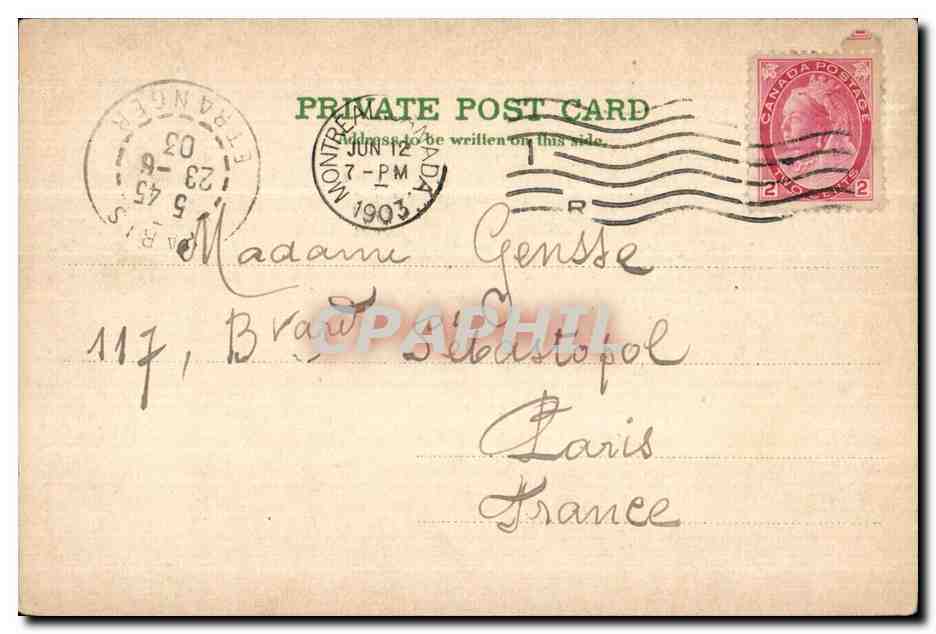 PRIVATE POST CARD
Address to be written on this side.
MONTREAL CANADA
JUN 12
7-PM
1903
I
R
CANADA POSTAGE
2 TWO CENTS 2
PARIS ETRANGER
5 45
23 -6
03
Madame Gensse
117, Bvard Sébastopol
Paris
France
CPAPHIL